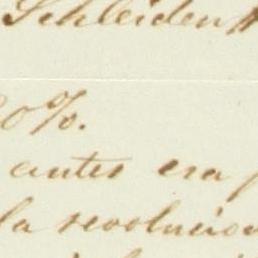 Schleiden
0%.
antes era p
la revolucion